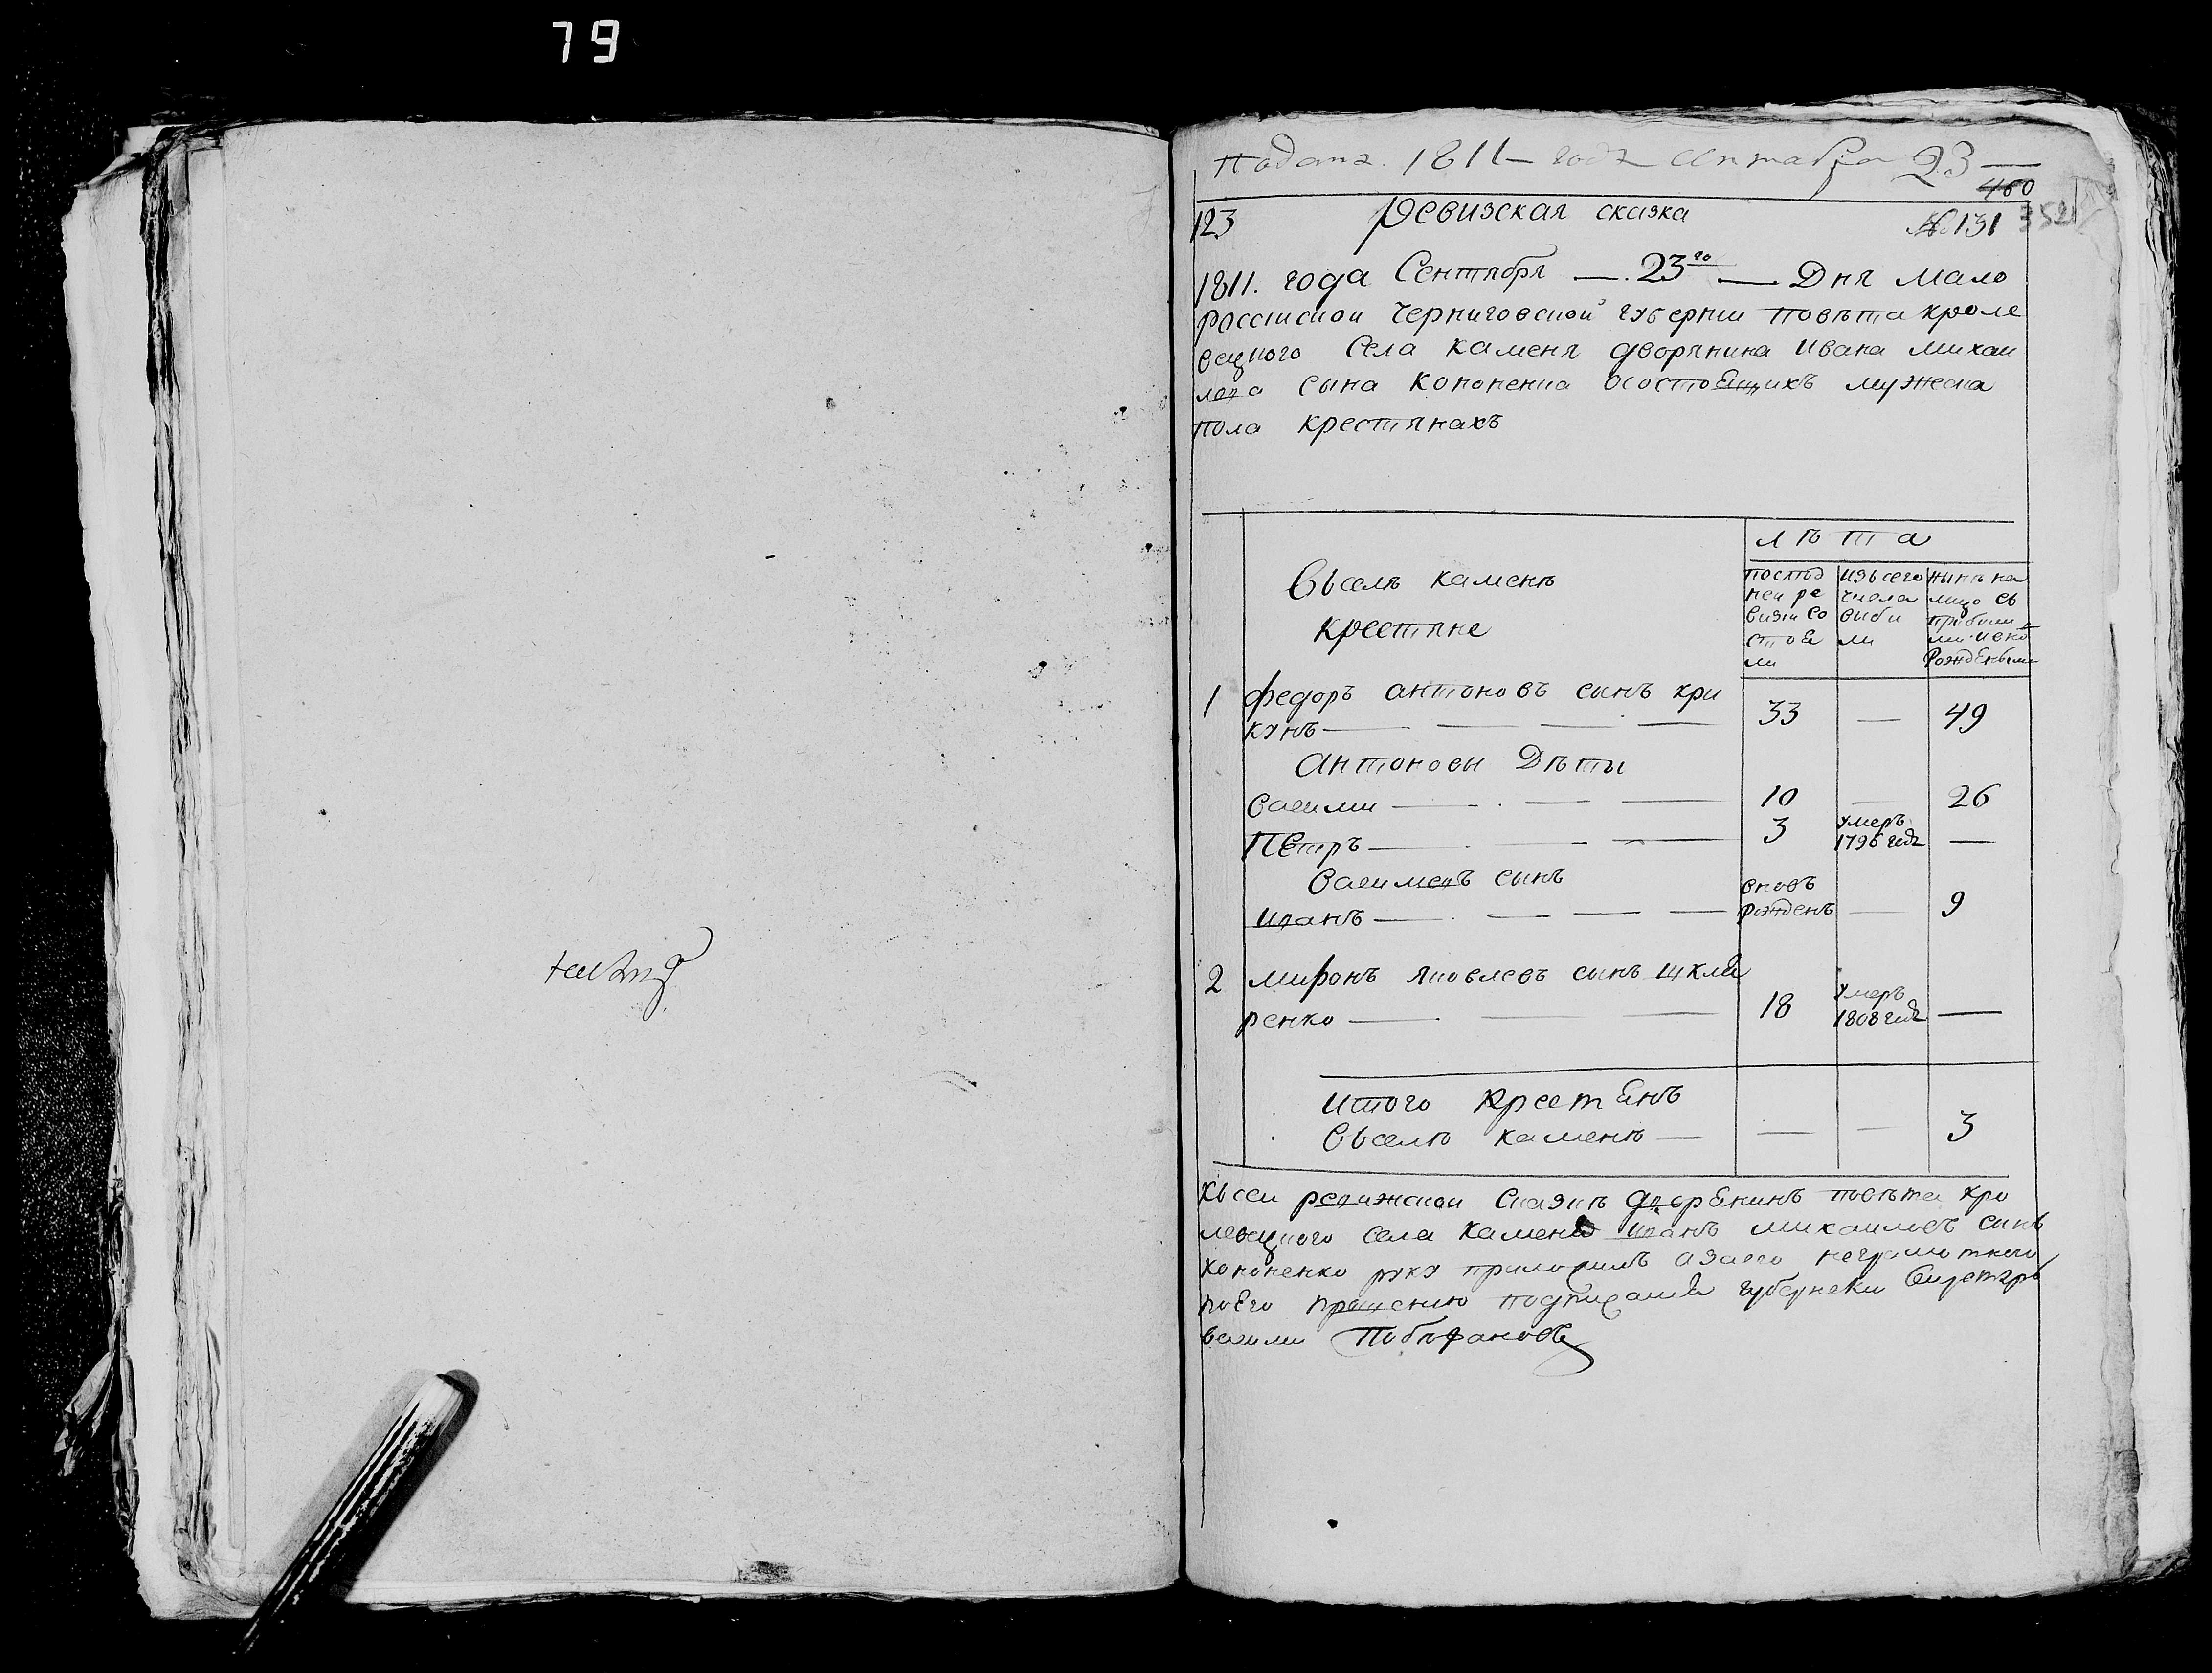 79
Подана 1811 года Сентабра 23
460
123 Ревизская сказка №131 352
1811. года Сентября 23го Дня Мало
россииской Черниговской губернии повѣта кроле
вецкого Села каменя дворянина ивана михаи
лова сына кононенка осостоящихъ мужеска
пола крестянахъ
лѣта
Вьселѣ каменѣ
крестяне
послѣд
неи ре
визи со
стоя
ли
изьсего
числа
выби
ли
нынѣ на
лицо сь
прибыли
ми и вно
рождеными
1 федоръ антоновъ сынъ кри
кунъ 33 — 49
Антоновы Дѣти
Васили 10 — 26
Петръ 3 умеръ 1796 года —
Васильевъ сынъ
иванъ вновь рожденъ — 9
2 миронъ яковлевъ сынъ шкля
ренко 18 умеръ 1808 года —
итого крестянъ
вьселѣ каменѣ — — — 3
Кьсеи ревижской сказкѣ дворянинъ повѣта кро
левецкого села каменя иванъ михаиловъ синъ
кононенко руку приложилъ азаего неграмотного
поего прошению подписался губернски Секретарь
васили